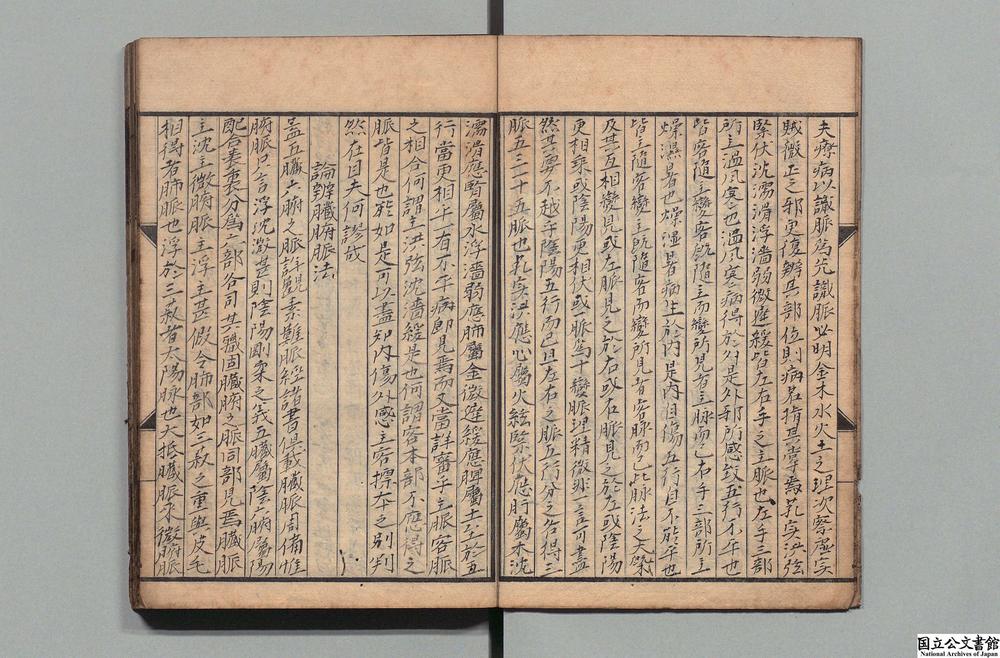 夫療病以識脈為先識脈必明金木水火土之理次察虛实
賊微正之邪更復辨其部位則病若指其掌焉芤实洪弦
緊伏沈濡滑浮濇弱微遲緩皆左右手之主脈也左手三部
所主温風寒也温風寒病得於外是外邪所感致五行不平也
皆客隨主變客既隨主而變所見者主脈而已右手三部所主
燥濕暑也燥湿暑病生於内是内自傷五行自不能平也
皆主隨客變主既隨客而變所見者客脈而已此脉法之大槩
及其互相變見或左脈見之於右或右脈見之於左或陰陽
更相乘或陰陽更相伏或一脈為十變脈理精微非一言可盡
然其要不越乎陰陽五行而已且左右之脈五行分之各得三
脈五三十五脈也芤实洪應心屬火弦緊伏應肝屬木沈
濡滑應腎屬水浮濇弱應肺屬金微遲緩應脾屬土至於五
行當更相平一有不平病即見焉而又當詳審乎主脈客脈
之相合何謂主洪弦沈濇緩是也何謂客本部不應得之
脈皆是也於如是可以盡知内傷外感主客標本之別判
然在目夫何謬哉
論辨臟腑脈法
蓋五臟六腑之脈詳觀素難脈經諸書俱載臟脈周備惟
腑脈只言浮沈微甚則陰陽剛柔之義五臟屬陰六腑屬陽
配合表裏分為六部各司其職固臟腑之脈同部見焉臟脈
主沈主微腑脈主浮主甚假令肺部如三菽之重與皮毛
相得者肺脈也浮於三菽者太陽脉也大抵臟脈求微腑脈
国立公文書館
National Archives of Japan